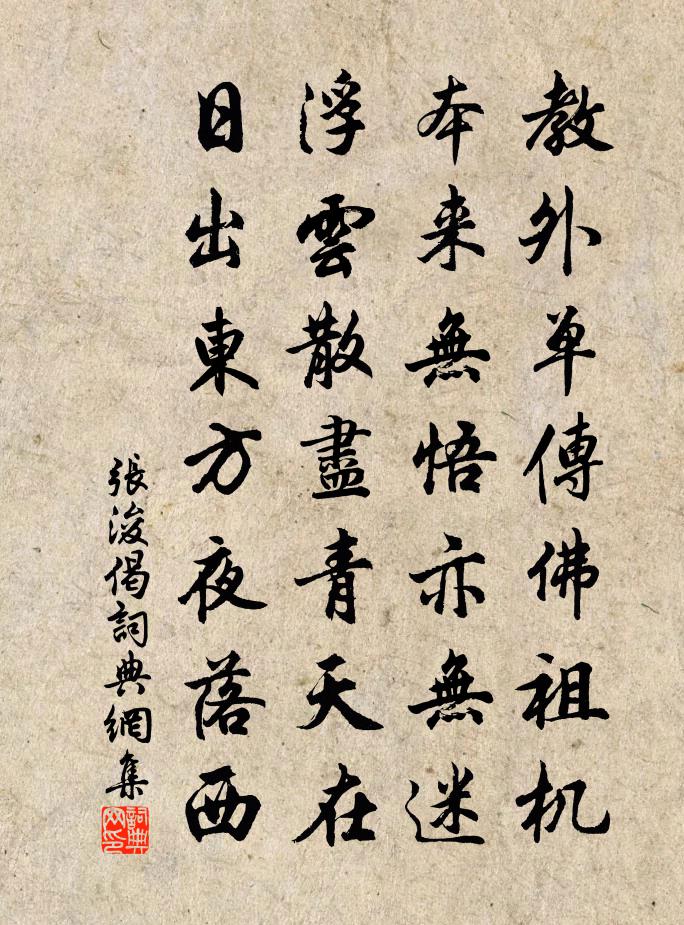 教外单傳佛祖机
本来無悟亦無迷
浮雲散盡青天在
日出東方夜落西
張浚偈詞典網集
詞典网印